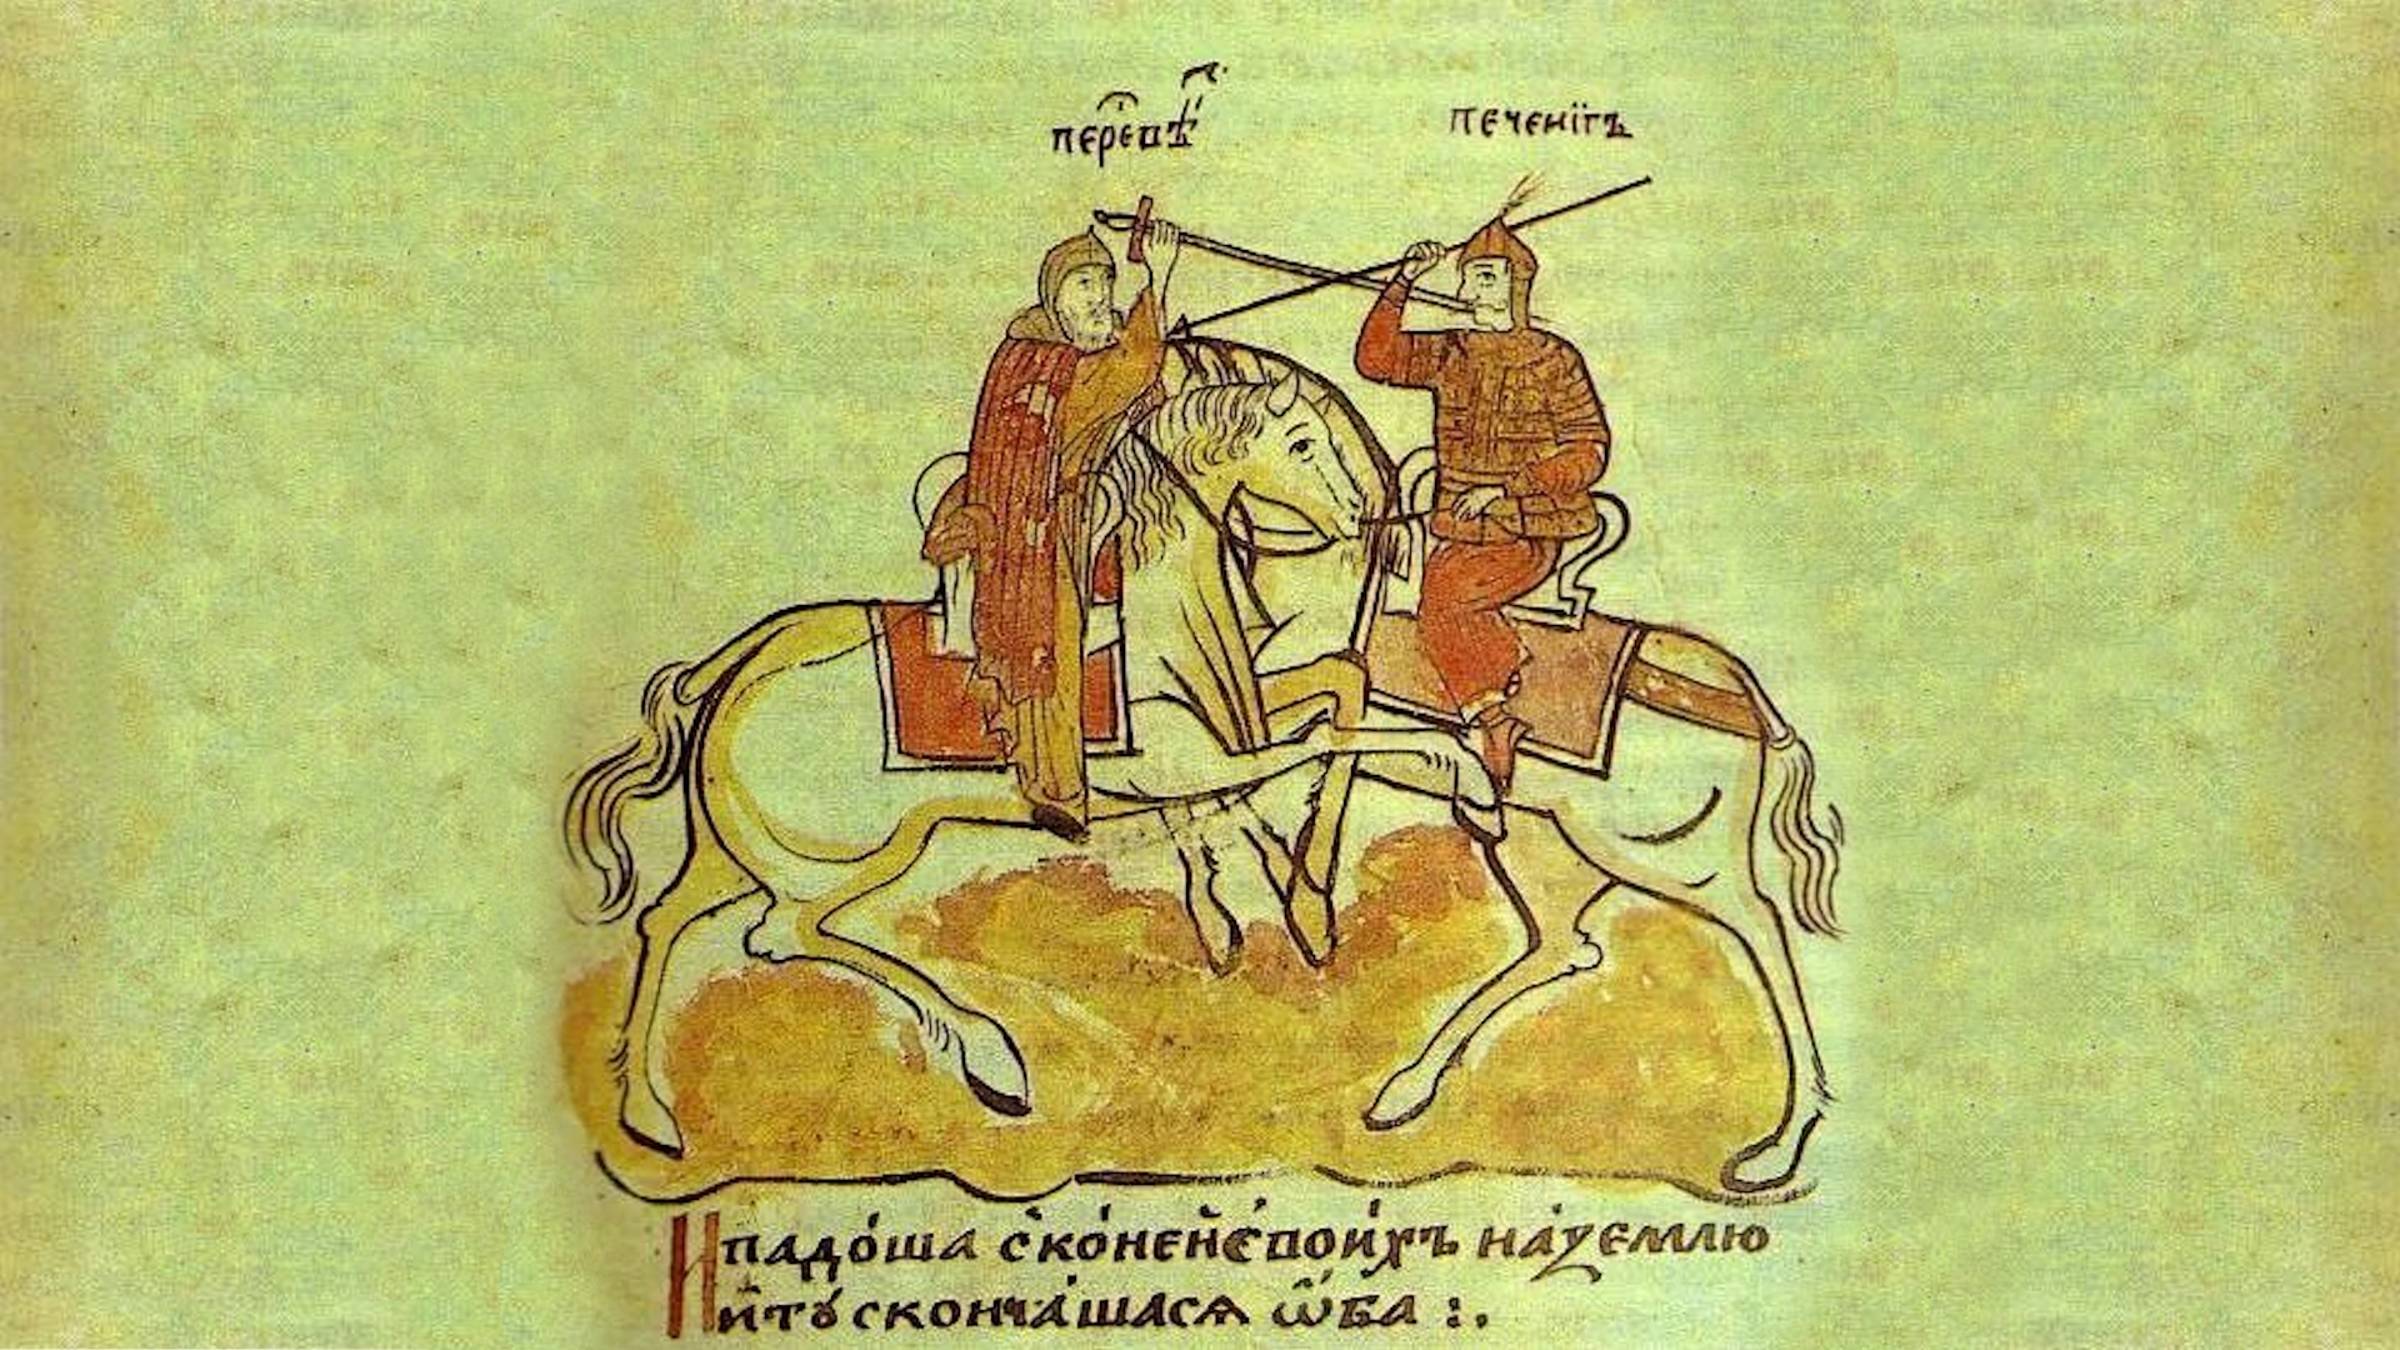 пересвѣт печенїгъ
И падоша с коней своихъ на землю
и ту скончашася ѡба :.